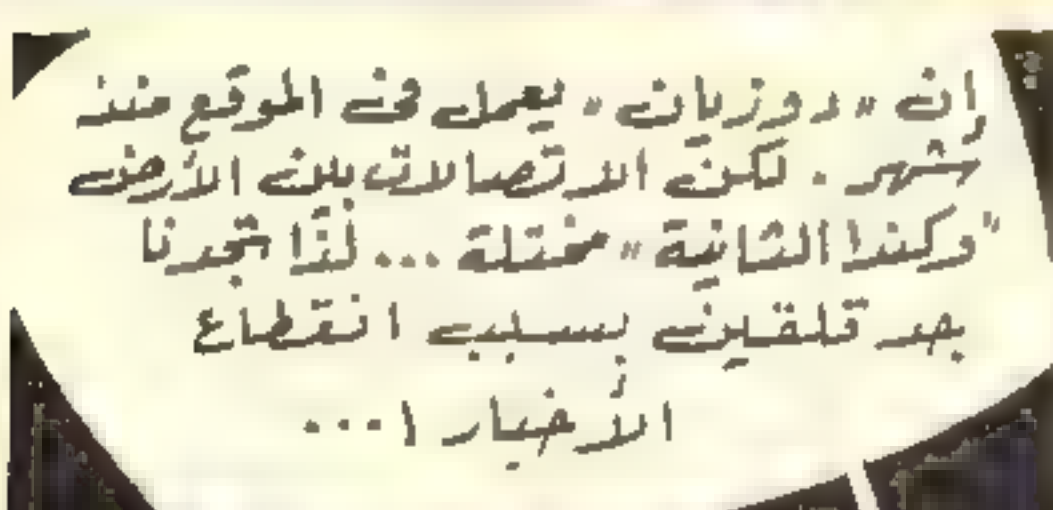 إن « دوزيان » يعمل في الموقع منذ
شهر . لكنّ الاتصالات بين الأرض
"وكندا الثانية" مختلة ... لذا تجدنا
جد قلقين بسبب انقطاع
الأخبار !...